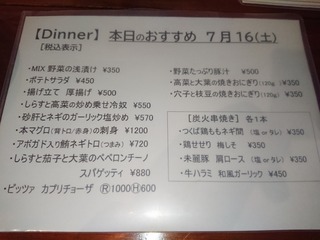 【Dinner】 本日のおすすめ 7月16(土)
[税込表示]
・MIX 野菜の浅漬け ¥350
・ポテトサラダ ¥450
・揚げ立て 厚揚げ ¥500
・しらすと高菜の炒め乗せ冷奴 ¥550
・砂肝とネギのガーリック塩炒め ¥570
・本マグロ(背トロ/赤身)の刺身 ¥1200
・アボガド入り鮪ネギトロ(つまみ) ¥720
・しらすと茄子と大葉のペペロンチーノ
スパゲッティ ¥880
・ピッツァ カプリチョーザ Ⓡ1000Ⓗ600
・野菜たっぷり豚汁 ¥500
・高菜と大葉の焼きおにぎり(120g) ¥350
・穴子と枝豆の焼きおにぎり(120g) ¥350
[炭火串焼き] 各1本
・つくば鶏ももネギ間 (塩 or タレ) ¥350
・鶏せせり 梅しそ ¥350
・未麗豚 肩ロース (塩 or タレ) ¥350
・牛ハラミ 和風ガーリック ¥450